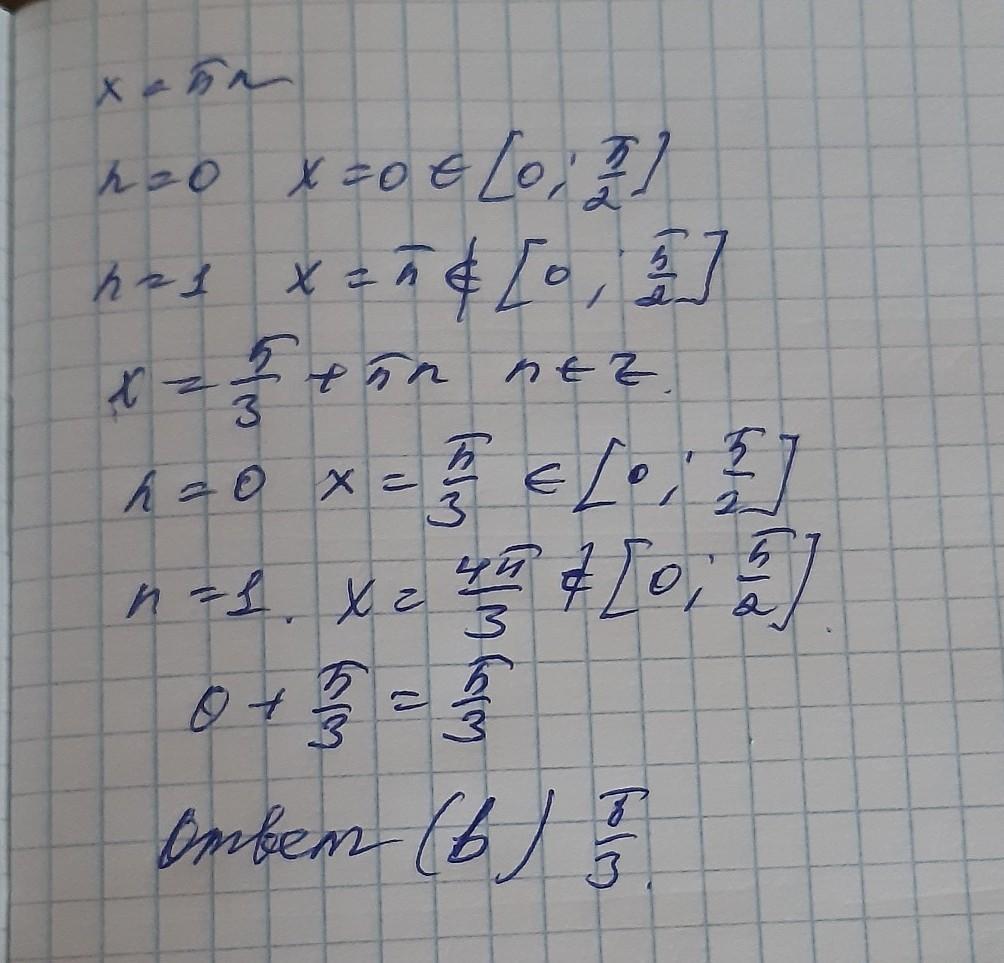 x = πn
n = 0 x = 0 ∈ [0; π/2]
n = 1 x = π ∉ [0; π/2]
x = π/3 + πn n ∈ Z.
n = 0 x = π/3 ∈ [0; π/2]
n = 1. x = 4π/3 ∉ [0; π/2].
0 + π/3 = π/3
Ответ (в) π/3.